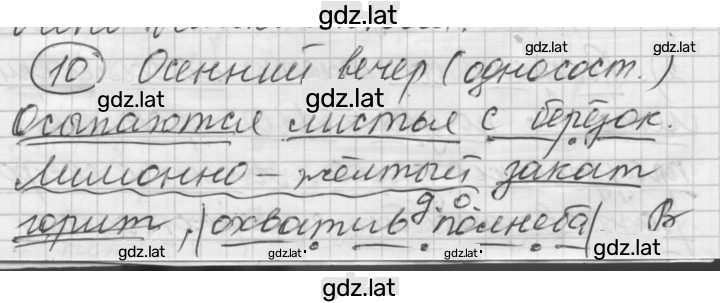 gdz.lat
gdz.lat
gdz.lat
10 Осенний вечер (односост.)
gdz.lat
gdz.lat
Осыпаются листья с берёзок.
Лимонно-жёлтый закат
д.о.
горит, |охватив полнеба| В
gdz.lat
gdz.lat
gdz.lat
gdz.lat